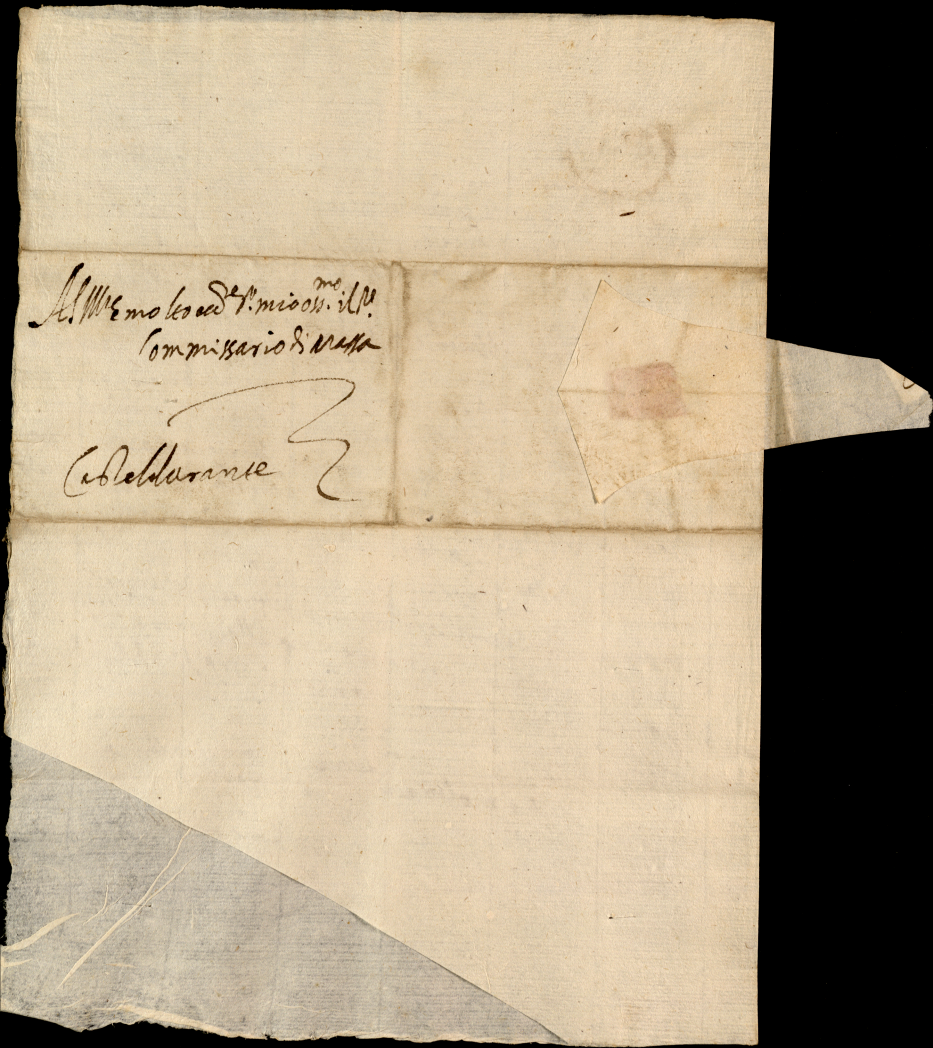 Al Ill.re e molto ecc.te S.r mio oss.mo il S.r
Commissario di Massa
Casteldurante